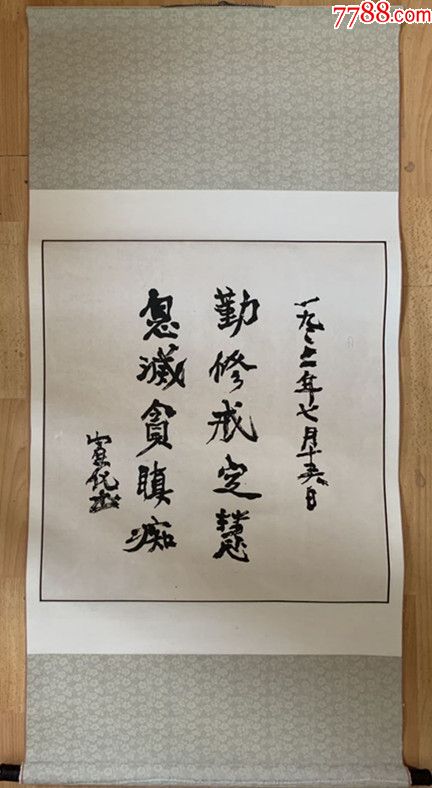 7788.com
一九二年七月十日
勤修戒定慧
息滅貪瞋痴
宣化書